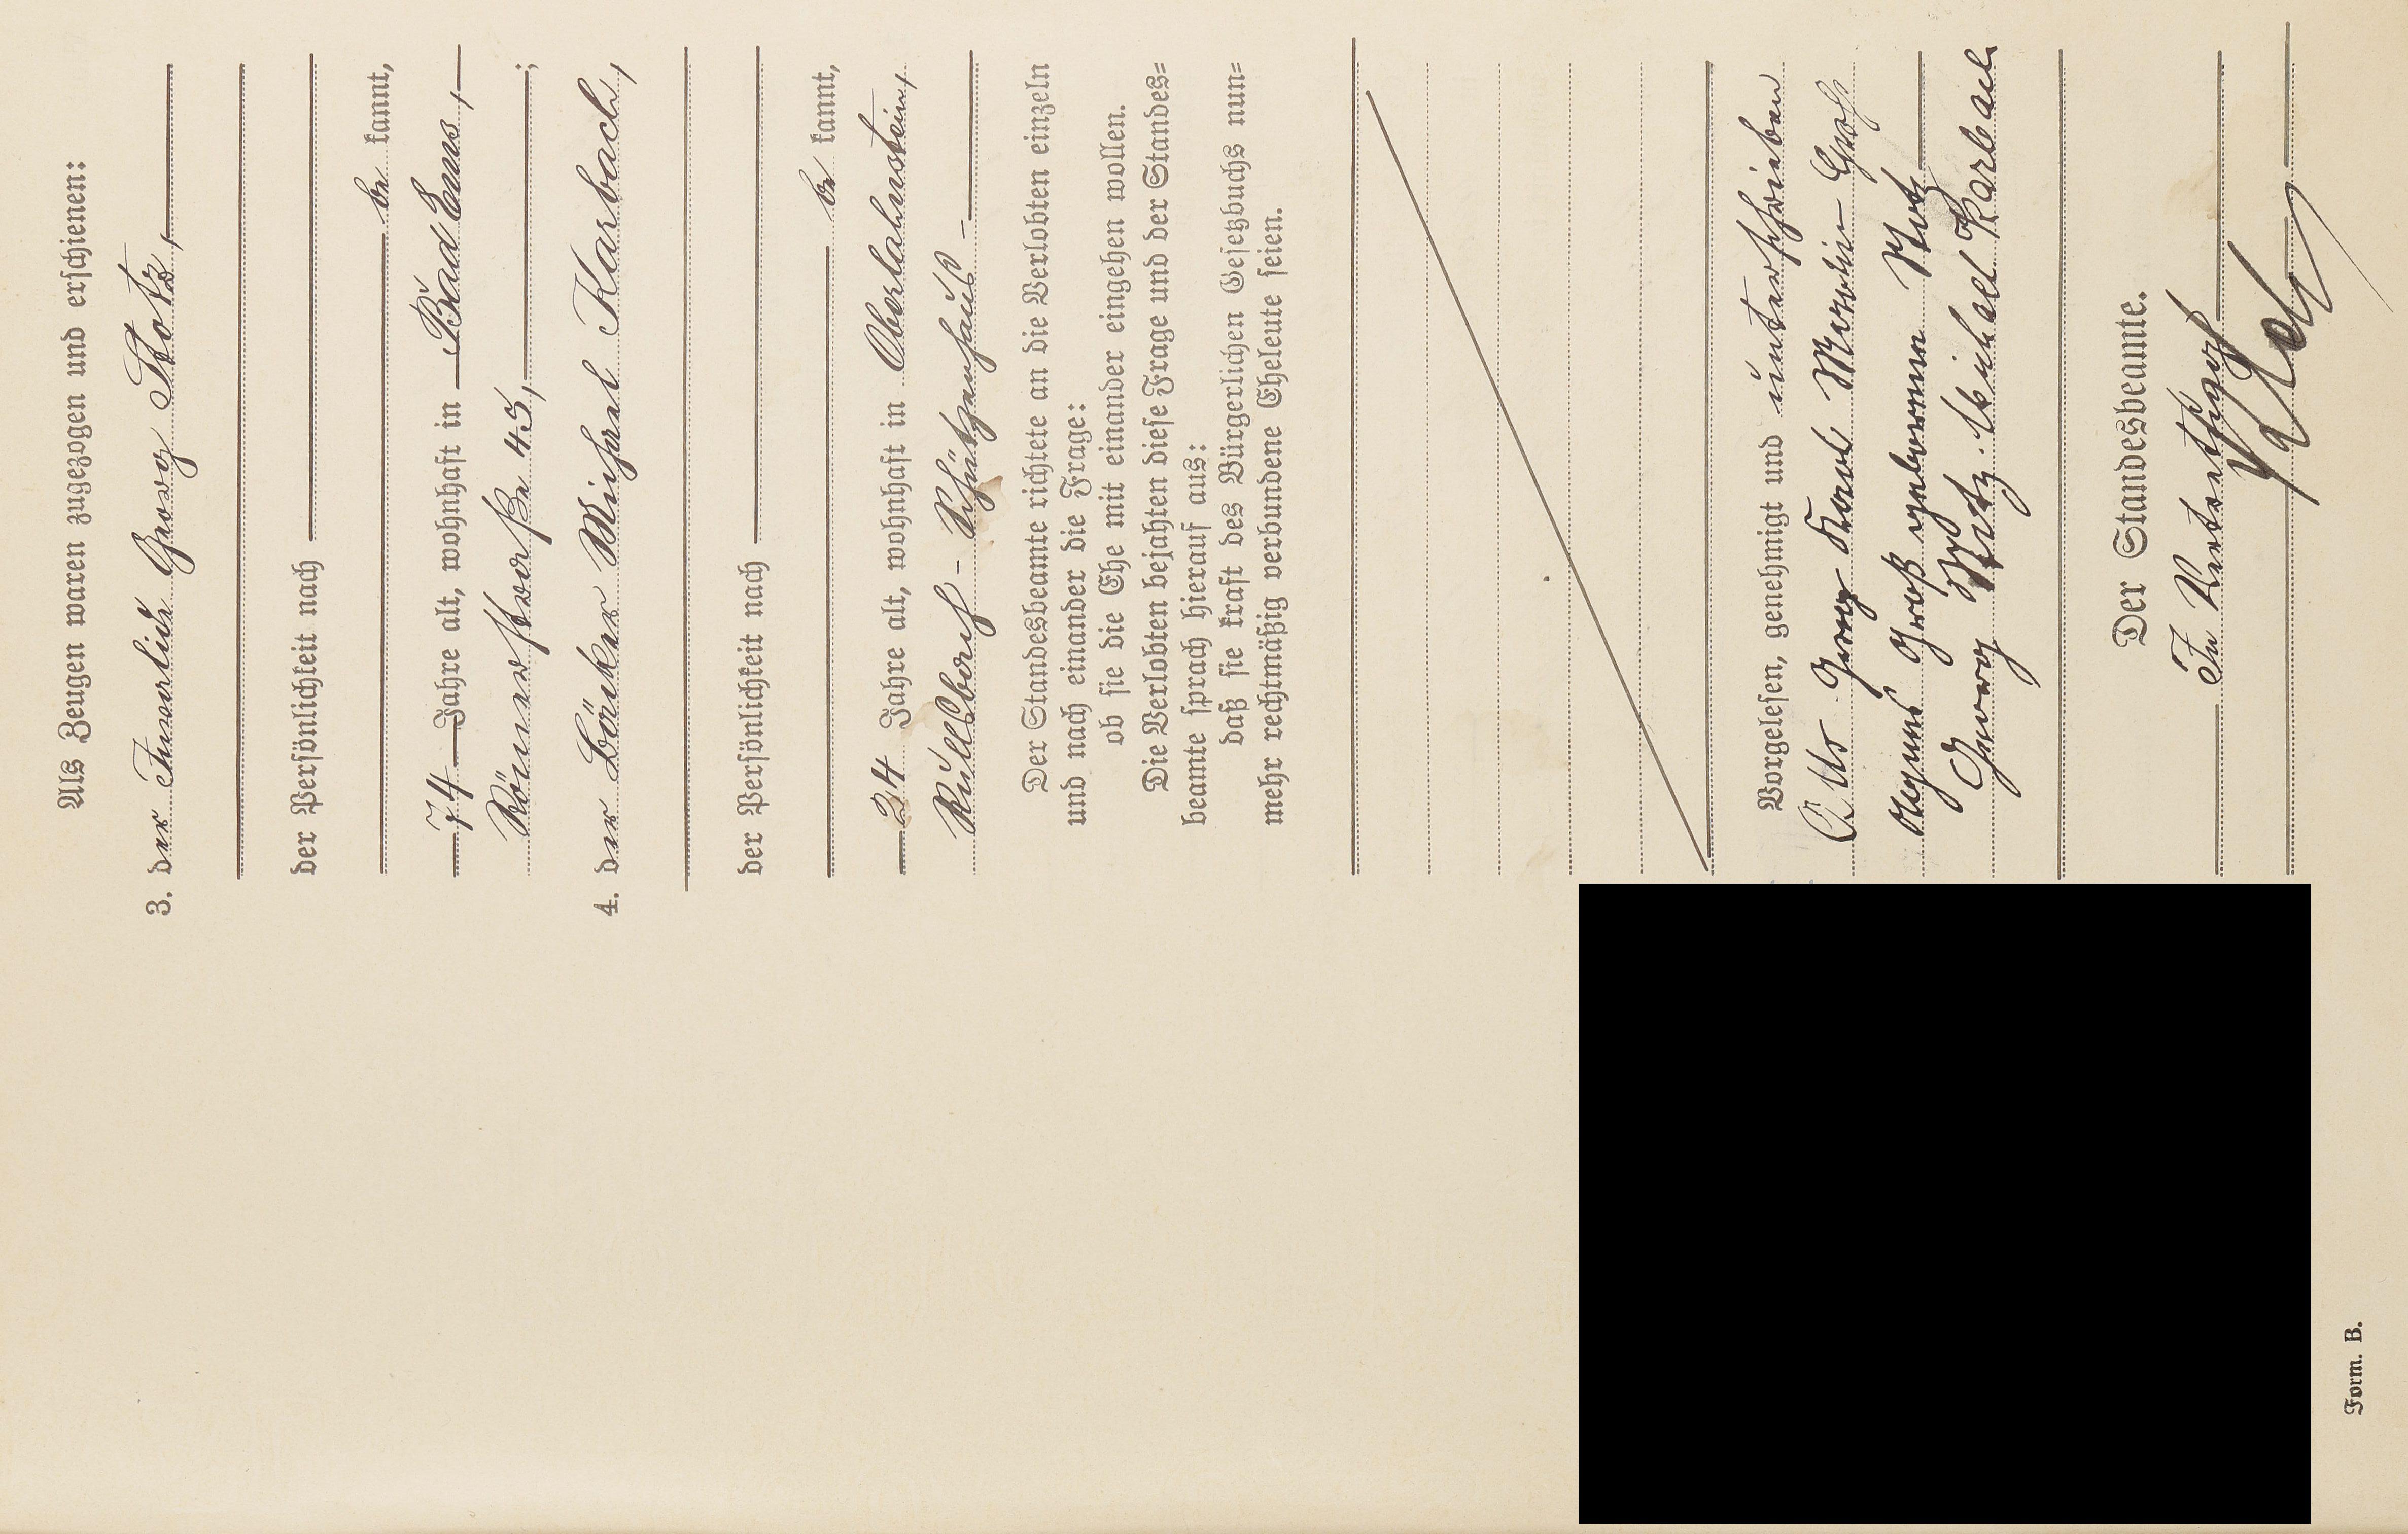 Als Zeugen waren zugezogen und erschienen:
3. der Invalide Georg Motz,
der Persönlichkeit nach
be kannt,
74 Jahre alt, wohnhaft in Bad Ems,
Römerstraße 45,
;
4. der Bäcker Michael Karbach,
der Persönlichkeit nach
be kannt,
24 Jahre alt, wohnhaft in Oberlahnstein,
- Schützenhaus -
Der Standesbeamte richtete an die Verlobten einzeln
und nach einander die Frage:
ob sie die Ehe mit einander eingehen wollen.
Die Verlobten bejahten diese Frage und der Standes=
beamte sprach hierauf aus:
daß sie kraft des Bürgerlichen Gesetzbuchs nun=
mehr rechtmäßig verbundene Eheleute seien.
Vorgelesen, genehmigt und unterschrieben
Otto Georg Karl Martin Groß
Groß geborene Motz
Georg Motz. Michael Karbach
Der Standesbeamte.
In Vertretung
Form. B.